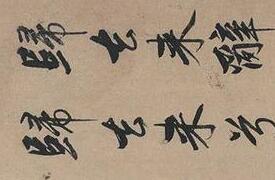 歸去來辭
歸去來兮